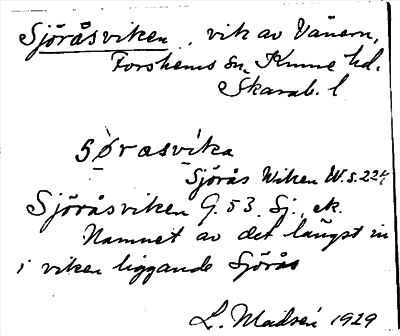 Sjöråsviken, vik av Vänern,
Forshems sn. Kinne hd.
Skarab. l
sørasvika
Sjörås Wiken W.s.224
Sjöråsviken G. 53. Sj., ek.
Namnet av det längst in
i viken liggande Sjörås
L. Madsén 1929